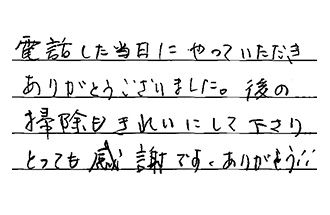 電話した当日にやっていただき
ありがとうございました。後の
掃除もきれいにして下さり
とっても感謝です。ありがとう!!